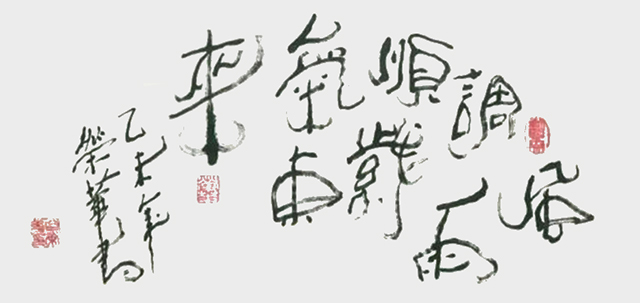 風調雨順紫氣東來
乙未年
榮華書